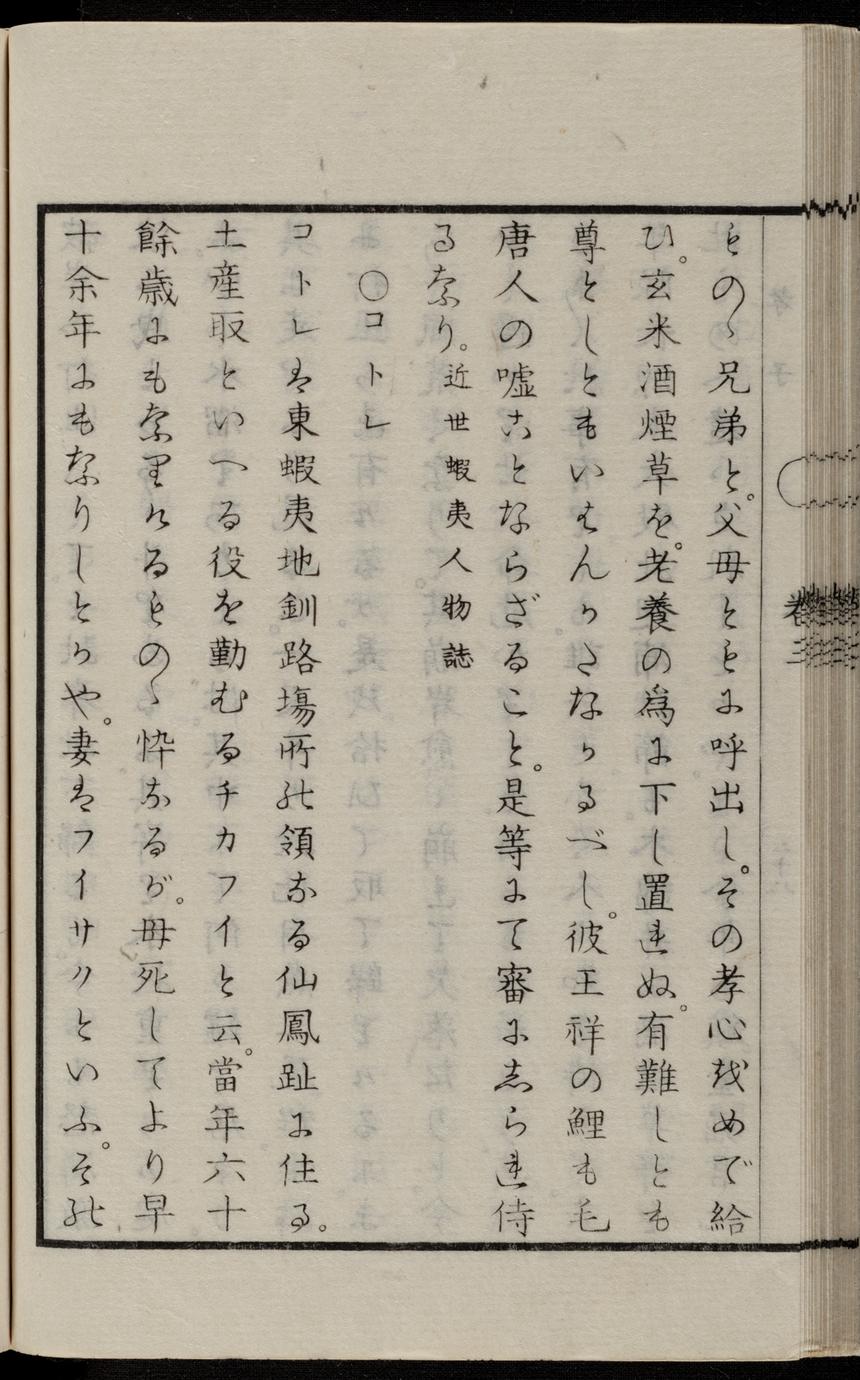 ものゝ兄弟と。父母ともに呼出し。その孝心をめで給
ひ。玄米酒煙草を。老養の為に下し置れぬ。有難しとも
尊としともいはんかたなかるべし。彼王祥の鯉も毛
唐人の嘘ことならざること。是等にて審にしられ侍
るなり。近世蝦夷人物誌
〇コトレ
コトレは東蝦夷地釧路場所の領なる仙鳳趾に住る。
土産取といへる役を勤むるチカフイと云。當年六十
餘歳にもなりけるものゝ悴なるが。母死してより早
十余年にもなりしとかや。妻はフイサクといふ。その
巻三